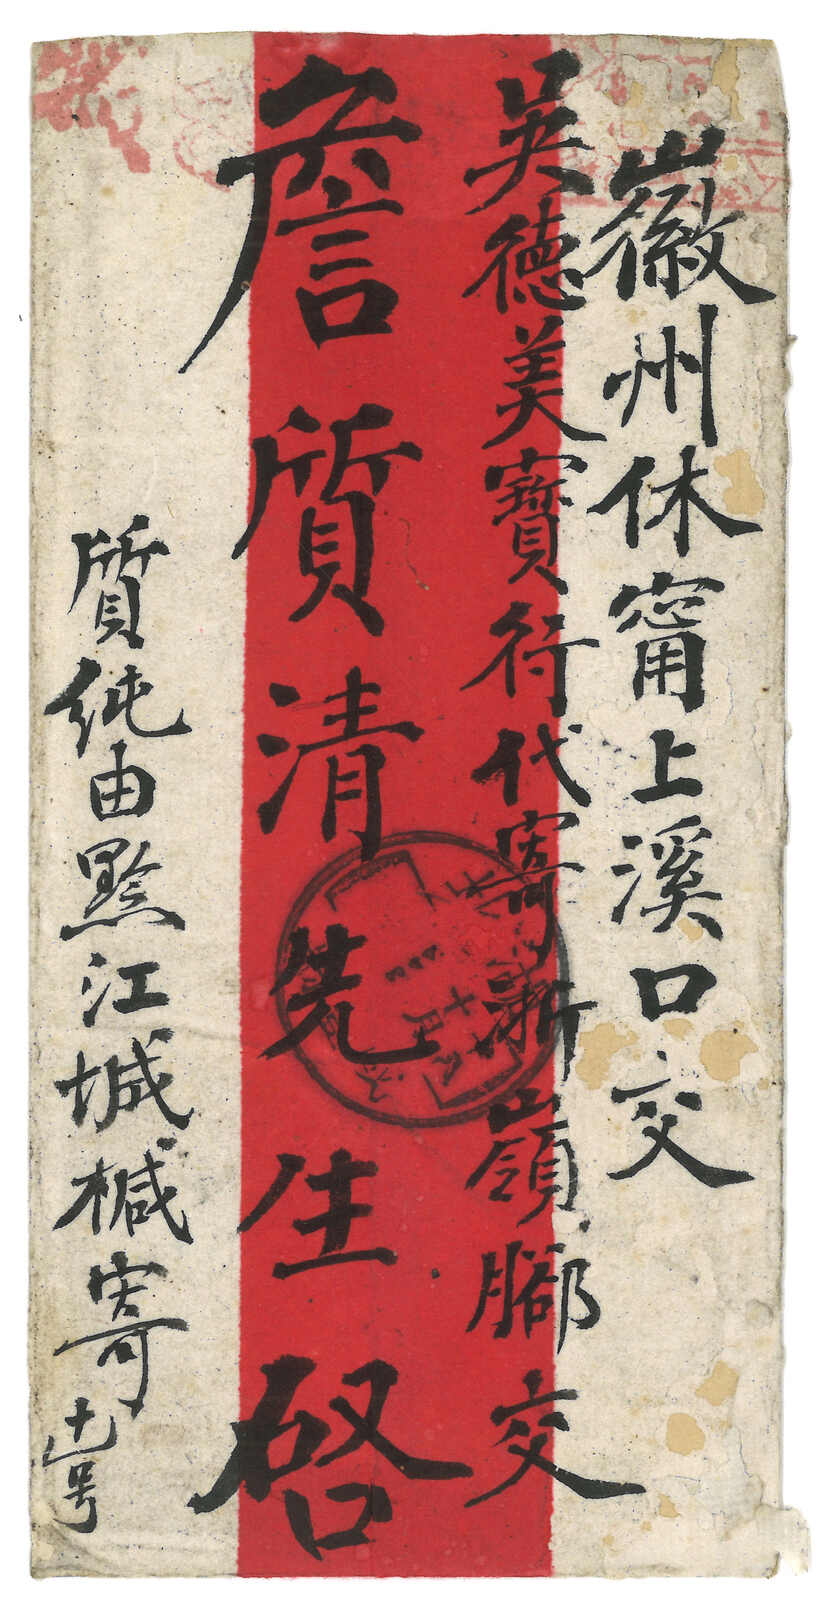 徽州休甯上溪口交
吳德美寶行代寄浙嶺腳交
詹質清先生啓
質純由黟江城椷寄
十月